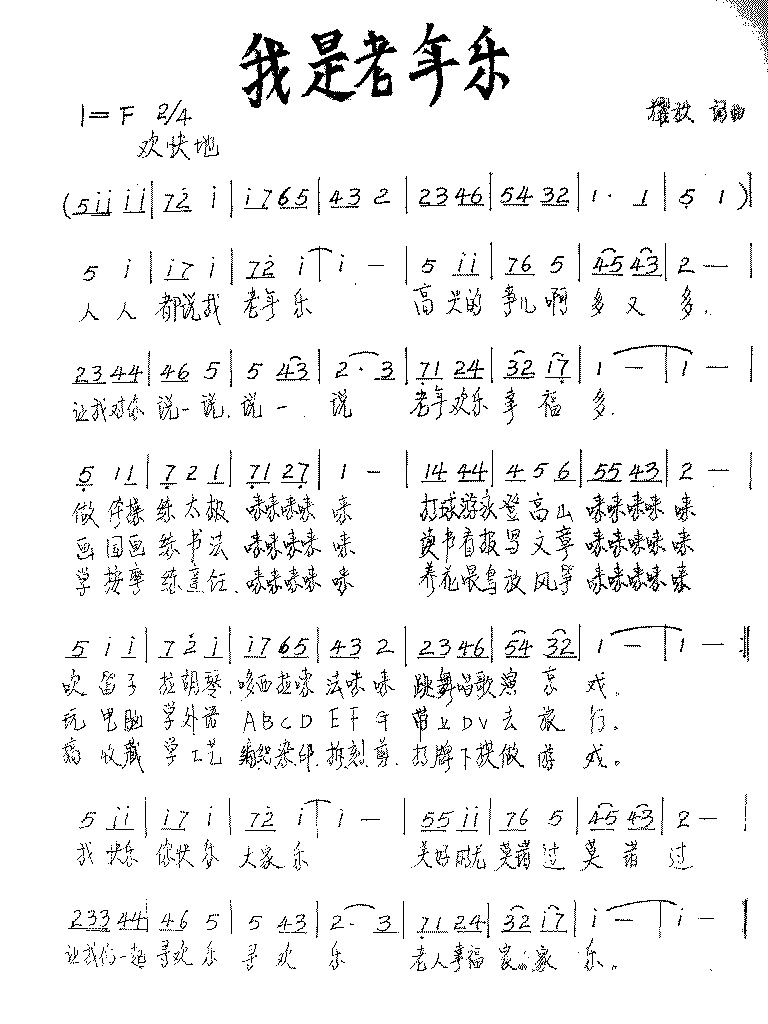 我是老年乐
1=F 2/4
耀放 词曲
欢快地
(5ii ii | 72 i | i7 65 | 43 2 | 23 46 | 54 32 | 1· 1 | 5 1 )‖
5 i | i7 i | 72 i | i — | 5 ii | 76 5 | 45 43 | 2 — |
人人 都说我 老年乐 高兴的 事儿啊 多又多.
23 44 | 46 5 | 5 43 | 2· 3 | 71 24 | 32 17 | 1 — | 1 — |
让我对你 说一说. 说一说 老年欢乐 幸福多.
5 11 | 7 2 1 | 71 27 | 1 — | 14 44 | 4 5 6 | 55 43 | 2 — |
做体操 练太极 咪咪咪咪 咪 打球游泳 登高山 咪咪咪咪 咪
画国画 练书法 咪咪咪咪 咪 读书看报 写文章 咪咪咪咪 咪
学按摩 练烹饪. 咪咪咪咪 咪 养花喂鸟 放风筝 咪咪咪咪 咪
5 i i | 7 2 i | i7 65 | 43 2 | 23 46 | 54 32 | 1 — | 1 — :‖
吹笛子 拉胡琴. 哆西拉嗦 法咪咪 跳舞唱歌 演京戏.
玩电脑 学外语 ABCD EFG 带上DV去旅行.
搞收藏 学工艺 编织染印. 拆刻剪. 打牌下棋 做游戏。
5 ii | i7 i | 72 i | i — | 55 ii | 76 5 | 45 43 | 2 — |
我快乐 你快乐 大家乐 美好时光 莫错过 莫错过
233 44 | 46 5 | 5 43 | 2· 3 | 71 24 | 32 i7 | i — | i — ‖
让我们一起 寻欢乐 寻欢乐 老人幸福 家家乐。